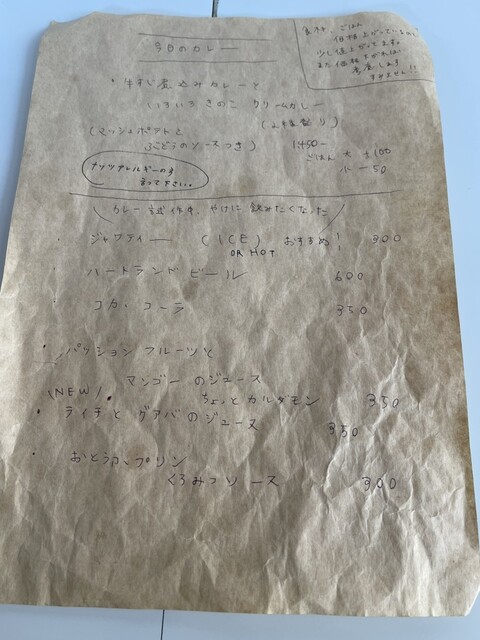 今日のカレー
食材、ごはん
価格上がっているので
少し値上がってます。
また価格下がれば
考慮します
すみません!!
・牛すじ煮込みカレーと
いろいろきのこ クリームカレー
(2種盛り)
(マッシュポテトと
ぶどうのソースつき) 1450-
ごはん 大 +100
小 -50
ナッツアレルギーの方
言って下さい。
カレー試作中、やけに飲みたくなった
・ジャワティー (ICE) おすすめ! 300
OR HOT
・ハートランド ビール 600
・コカ・コーラ 350
・パッション フルーツと
マンゴー のジュース
ちょっと カルダモン 350
NEW
・ライチと グアバのジュース 350
・おとうふプリン
くろみつソース 300